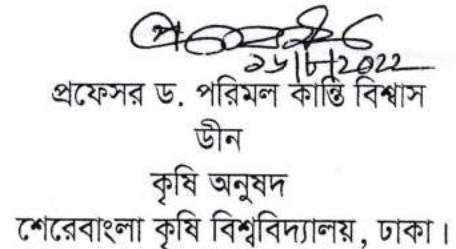 ১৬|৮|2022
প্রফেসর ড. পরিমল কান্তি বিশ্বাস
ডীন
কৃষি অনুষদ
শেরেবাংলা কৃষি বিশ্ববিদ্যালয়, ঢাকা।